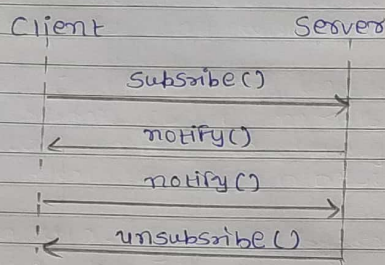 Client Server
Subsribe()
notify()
notify()
unsubsribe()